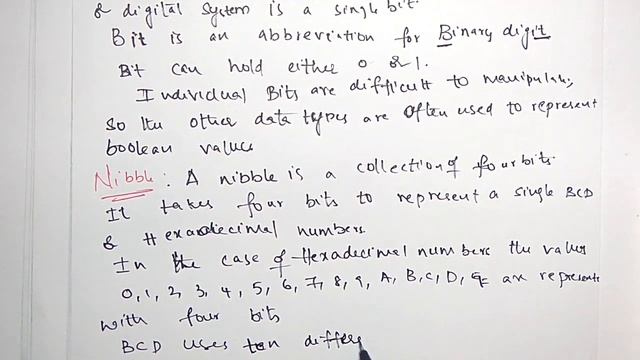 & digital system is a single bit.
Bit is an abbreviation for Binary digit
Bit can hold either 0 or 1.
Individual Bits are difficult to manipulate,
so the other data types are often used to represent
boolean values
Nibble: A nibble is a collection of four bits.
It takes four bits to represent a single BCD
& Hexadecimal numbers
In the case of Hexadecimal numbers the values
0, 1, 2, 3, 4, 5, 6, 7, 8, 9, A, B, C, D, are represents
with four bits
BCD uses ten differe